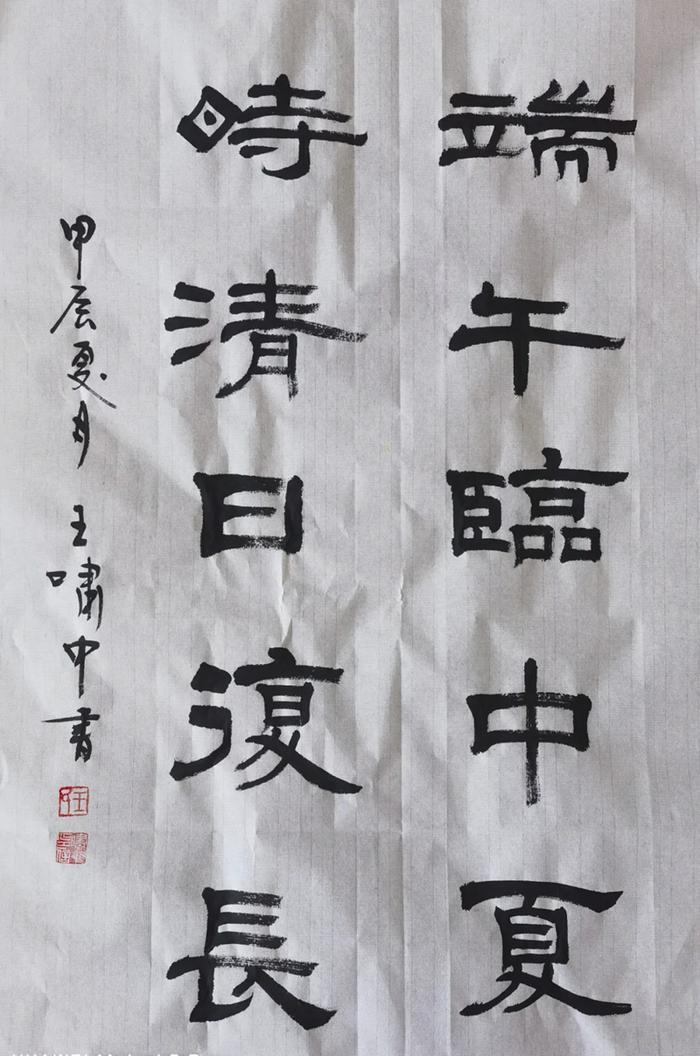 端午臨中夏
時清日復長
甲辰夏月 王嘯中書